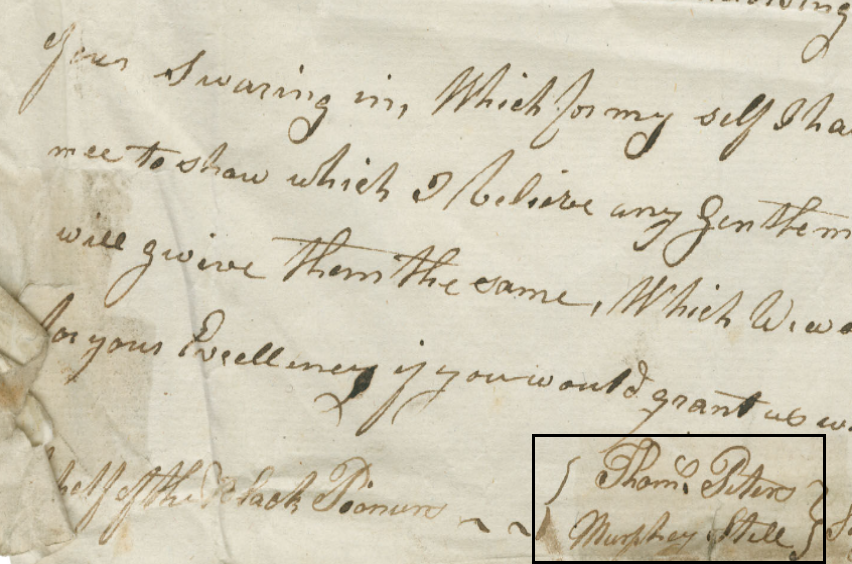 your Swaring in, Which for my self I ha
mee to show which I believe any Gentlem
will gwive them the same, Which We wo
for your Excellincy if you would grant us w
half of the Black Pioneers
Thoms. Peters
Murphey Still